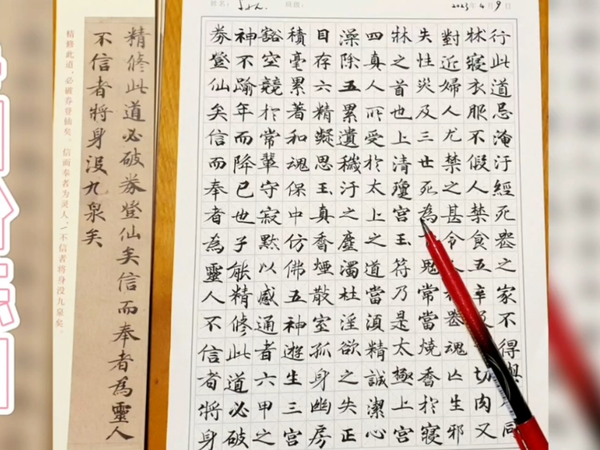 2023 4 9日
行此道忌淹汙經死喪之家不得與同
牀寢衣服不假人禁食五辛切肉又
對近婦人尤禁之甚令喪魂亡生邪
失性災及三世死為鬼常當燒香於寢
牀之首也上清瓊宮玉符乃是太極上宮
四真人所受於太上之道當須精誠潔心
澡除五累遺穢汙之塵濁杜淫欲之失正
目存六精凝思玉真香煙散室孤身幽房
積毫累著和魂保中仿佛五神遊生三宮
豁空競於常輩守寂默以感通者六甲之
神不踰年而降已也子能精修此道必破
券登仙矣信而奉者為靈人不信者將身
精修此道必破券登仙矣信而奉者為靈人
不信者將身没九泉矣
精修此道，必破券登仙矣。信而奉者为灵人，不信者将身没九泉矣。